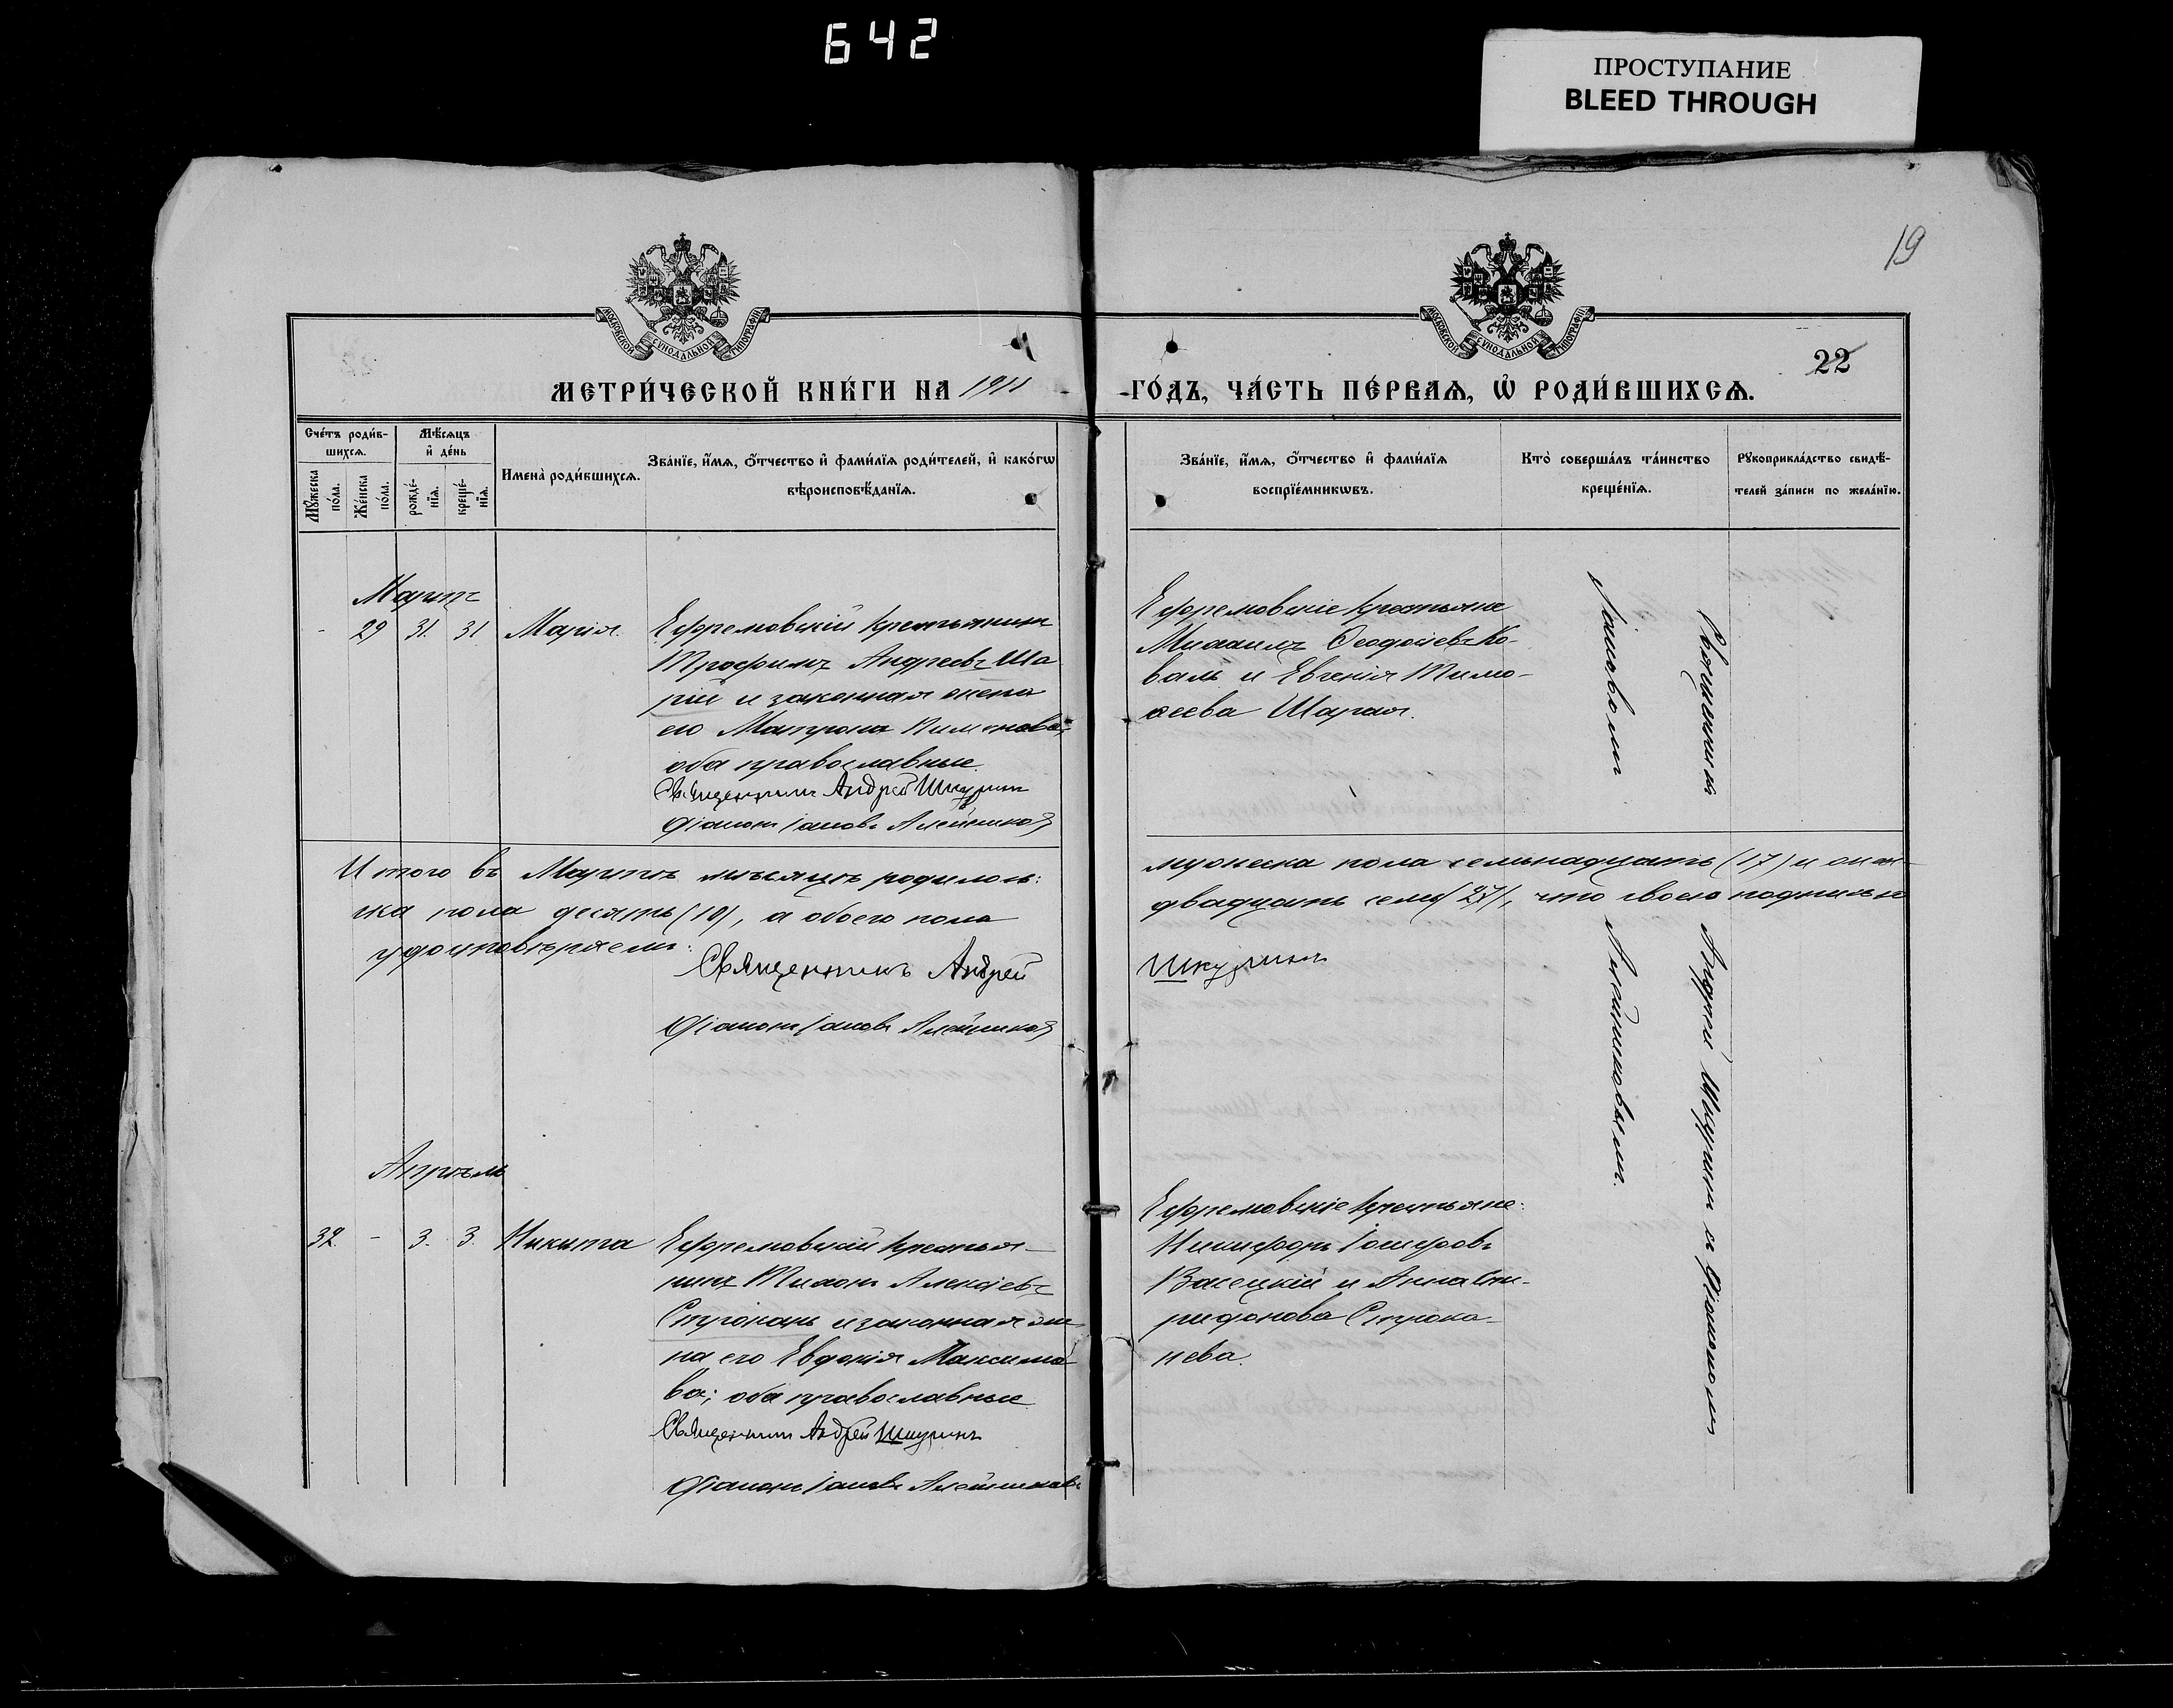 642
ПРОСТУПАНИЕ
BLEED THROUGH
19
МОСКОВСКОЙ СУНОДАЛЬНОЙ ТИПОГРАФІИ
МОСКОВСКОЙ СУНОДАЛЬНОЙ ТИПОГРАФІИ
22
МЕТРИ́ЧЕСКОЙ КНИ́ГИ НА 1911
ГО́ДЪ, ЧА́СТЬ ПЕ́РВАѦ, Ѡ҆ РОДИ́ВШИХСѦ.
Сче́тъ роди́в-
шихсѧ.
Мꙋ́жеска
по́ла.
Же́нска
по́ла.
Мѣ́сѧцъ
и҆ де́нь
рожде́-
нїѧ.
креще́-
нїѧ.
Имена̀ роди́вшихсѧ.
Зва́нїе, и҆́мѧ, ѻ҆́тчество и҆ фами́лїѧ роди́телей, и҆ како́гѡ
вѣроисповѣ́данїѧ.
Зва́нїе, и҆́мѧ, ѻ҆́тчество и҆ фами́лїѧ
воспрїе́мникѡвъ.
Кто̀ соверша́лъ та́инство
креще́нїѧ.
Рꙋкоприкла́дство свидѣ́-
телей за́писи по жела́нїю.
Мартъ
- 29 31. 31 Марія.
Ефремовскій крестьянинъ
Трофимъ Андреевъ Ша
рій и законная жена
его Матрона Пименова;
оба православные.
Священникъ Андрей Шкуринъ
Діаконъ Іаковъ Алейников
Ефремовскіе крестьяне
Михаилъ Ѳеодосіевъ Ко-
валь и Евгенія Тимо-
ѳеева Шарая.
Священникъ Андрей Шкуринъ и Діаконъ
Іаковомъ Алейниковымъ.
Итого въ Мартѣ мѣсяцѣ родилось:
мужеска пола семьнадцать (17) и жен-
ска пола десять (10), а обоего пола
двадцать семь (27), что своею подписью
удостовѣряемъ:
Священникъ Андрей
Шкуринъ
Діаконъ Іаковъ Алейников
Апрѣль
32. - 3. 3. Никита
Ефремовскій крестья-
нинъ Тихонъ Алексіевъ
Строкань и законная же
на его Евдокія Максимо
ва; оба православные
Священникъ Андрей Шкуринъ
Діаконъ Іаковъ Алейниковъ
Ефремовскіе крестьяне:
Никифоръ Іосифовъ
Васецкій и Анна Спи-
ридонова Строка-
нева.